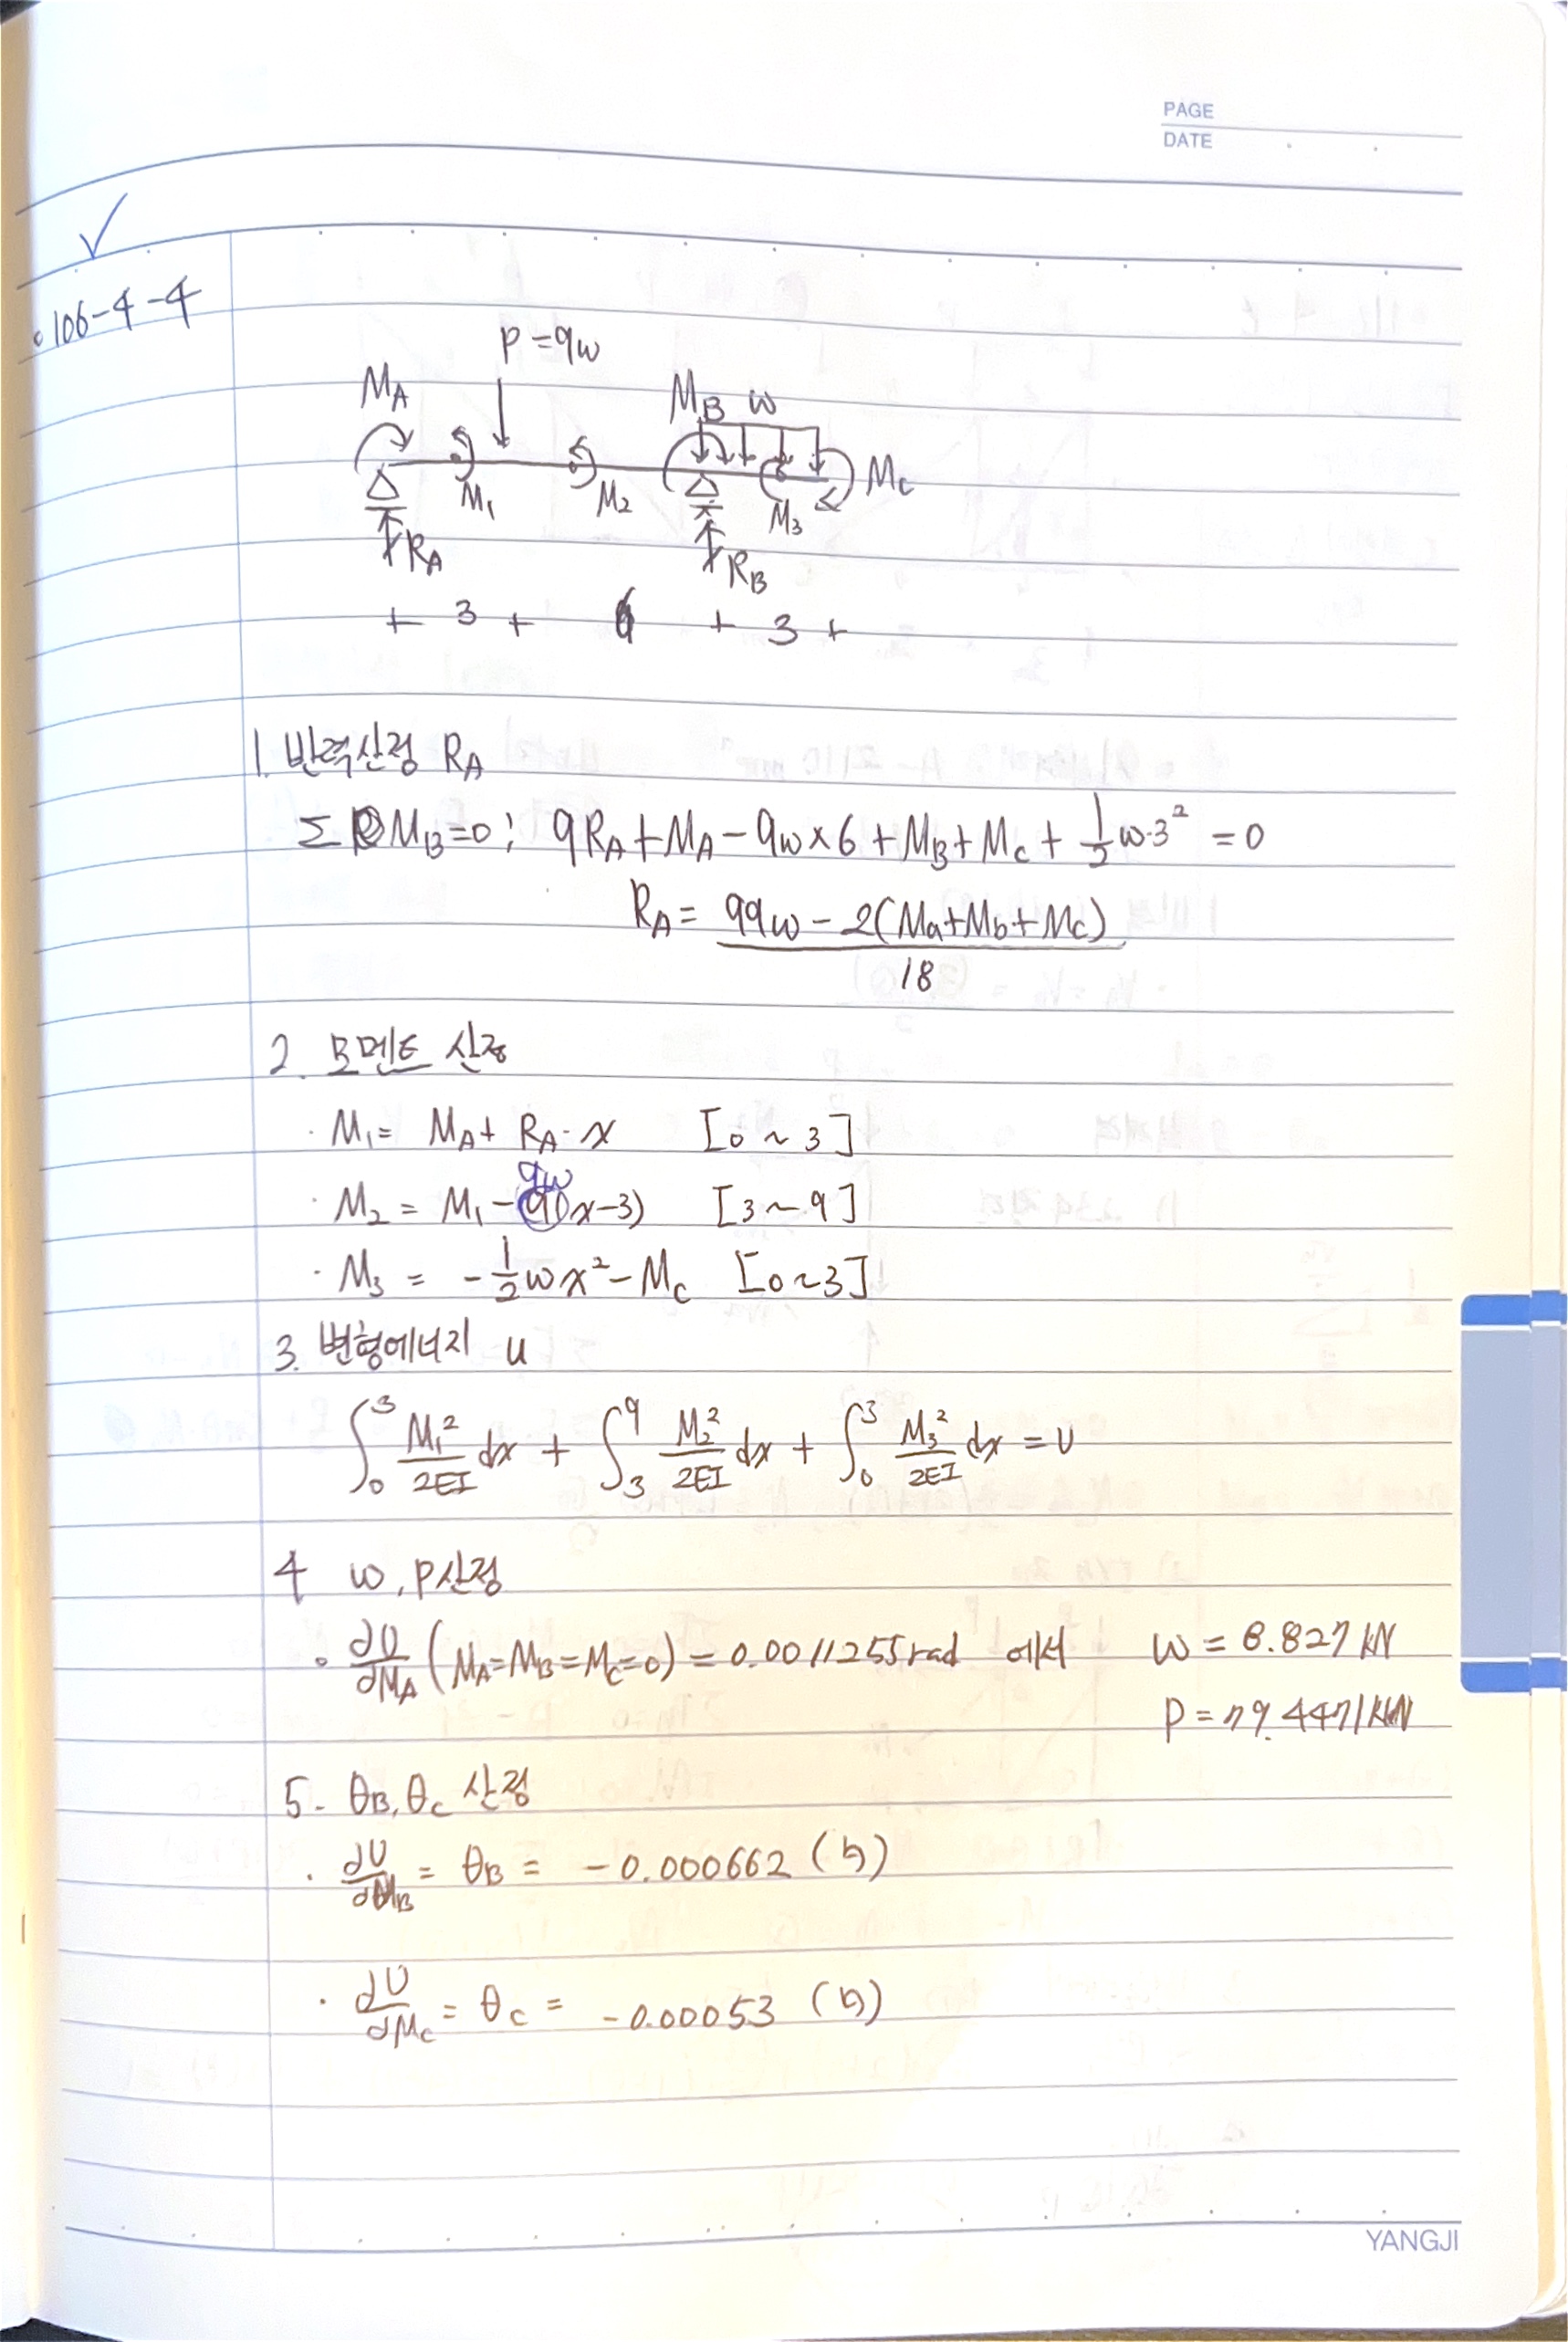 PAGE
DATE
✓
106-4-4
P=9w
MA
MB w
M1
M2
M3
Mc
RA
RB
+ 3 + 6 + 3 +
1. 반력산정 RA
Σ MB=0; 9RA+MA-9w×6+MB+Mc+½w·3²=0
RA= 99w-2(Ma+Mb+Mc) / 18
2. 모멘트 산정
· M1= MA+ RA·x [0~3]
9w
· M2 = M1-9(x-3) [3~9]
· M3 = -½wx²-Mc [0~3]
3. 변형에너지 u
∫₀³ M1²/2EI dx + ∫₃⁹ M2²/2EI dx + ∫₀³ M3²/2EI dx = U
4 w, P산정
· ∂U/∂MA (MA=MB=Mc=0) = 0.0011255rad 에서 w = 8.827 kN
P = 79.4471kN
5. θB, θc 산정
· ∂U/∂MB = θB = -0.000662 (↺)
· ∂U/∂Mc = θc = -0.00053 (↺)
YANGJI